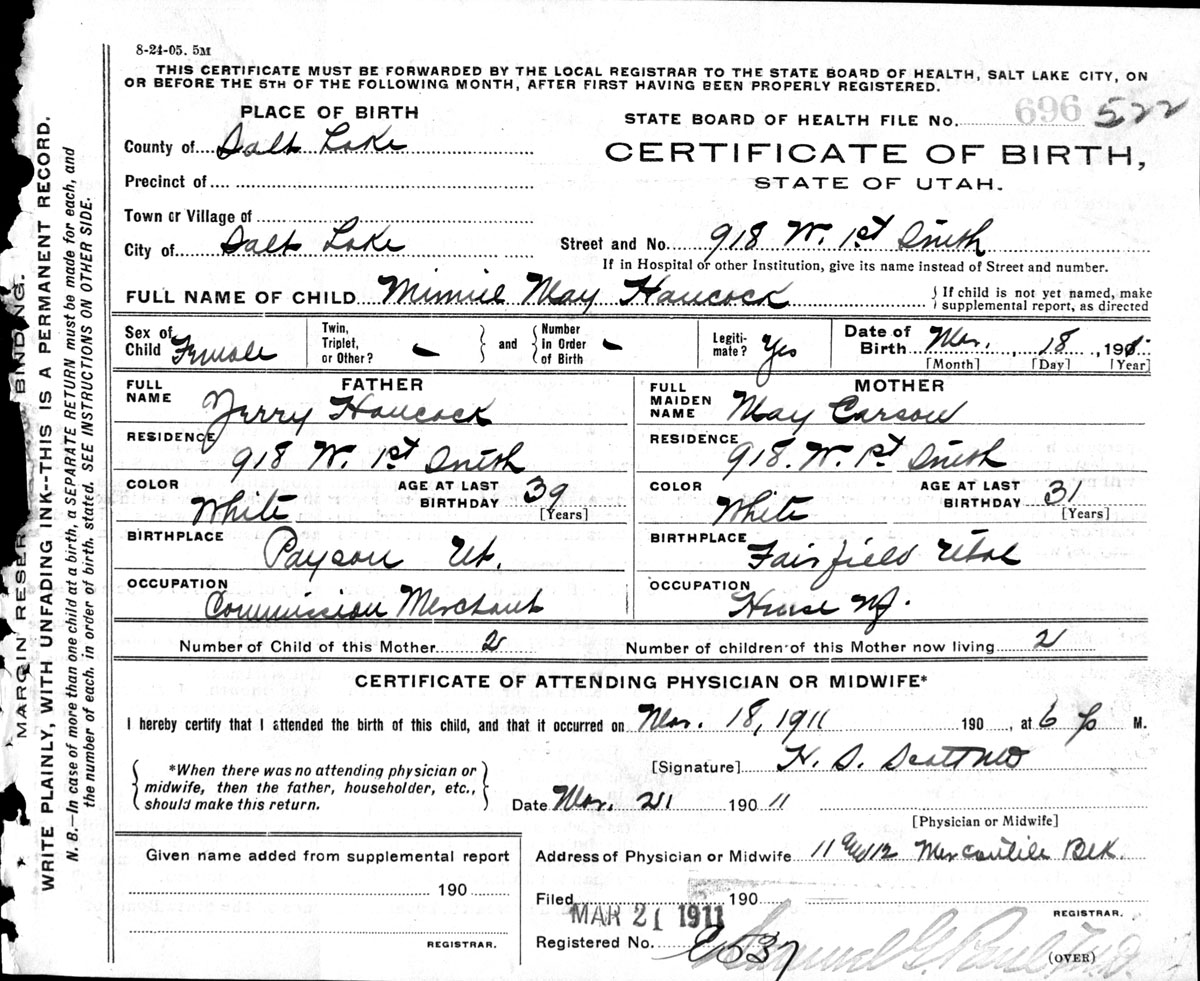 8-24-05. 5M
THIS CERTIFICATE MUST BE FORWARDED BY THE LOCAL REGISTRAR TO THE STATE BOARD OF HEALTH, SALT LAKE CITY, ON
OR BEFORE THE 5TH OF THE FOLLOWING MONTH, AFTER FIRST HAVING BEEN PROPERLY REGISTERED.
PLACE OF BIRTH
STATE BOARD OF HEALTH FILE No. 696 522
County of Salt Lake
CERTIFICATE OF BIRTH,
STATE OF UTAH.
Precinct of
Town or Village of
City of Salt Lake
Street and No. 918 W. 1st South
If in Hospital or other Institution, give its name instead of Street and number.
FULL NAME OF CHILD Minnie May Hancock
{ If child is not yet named, make
supplemental report, as directed
Sex of Child Female
Twin, Triplet, or Other? -
and
Number in Order of Birth -
Legitimate? Yes
Date of Birth Mar. 18, 191
[Month] [Day] [Year]
FATHER
FULL NAME Jerry Hancock
MOTHER
FULL MAIDEN NAME May Carson
RESIDENCE 918 W. 1st South
RESIDENCE 918. W. 1st South
COLOR White
AGE AT LAST BIRTHDAY 39
[Years]
COLOR White
AGE AT LAST BIRTHDAY 31
[Years]
BIRTHPLACE Payson Ut.
BIRTHPLACE Fairfield Utah
OCCUPATION Commission Merchant
OCCUPATION House Wf.
Number of Child of this Mother 2
Number of children of this Mother now living 2
CERTIFICATE OF ATTENDING PHYSICIAN OR MIDWIFE*
I hereby certify that I attended the birth of this child, and that it occurred on Mar. 18, 1911 190 , at 6 P M.
*When there was no attending physician or
midwife, then the father, householder, etc.,
should make this return.
[Signature] H. S. Scott MD
Date Mar. 21 190 11
[Physician or Midwife]
Given name added from supplemental report
190
REGISTRAR.
Address of Physician or Midwife 11 and 12 Mercantile Blk.
Filed 190
MAR 21 1911
REGISTRAR.
Registered No. 537
Samuel G. Paul, M.D.
(OVER)
MARGIN RESER BINDING.
WRITE PLAINLY, WITH UNFADING INK--THIS IS A PERMANENT RECORD.
N. B.—In case of more than one child at a birth, a SEPARATE RETURN must be made for each, and
the number of each, in order of birth, stated. SEE INSTRUCTIONS ON OTHER SIDE.